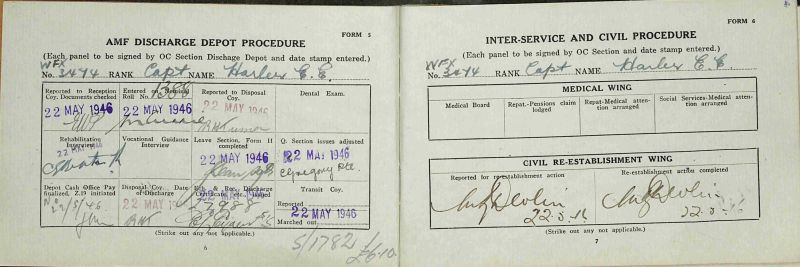 FORM 5
AMF DISCHARGE DEPOT PROCEDURE
(Each panel to be signed by OC Section Discharge Depot and date stamp entered.)
WFX
No. 3474 RANK Capt NAME Harler E. E.
Reported to Reception Coy. Documents checked
22 MAY 1946
Entered on Nominal Roll No. 1388
22 MAY 1946
Reported to Disposal Coy.
22 MAY 1946
Dental Exam.
Rehabilitation Interview
22 MAY 1946
Vocational Guidance Interview
Leave Section, Form II completed
22 MAY 1946
Q. Section issues adjusted
22 MAY 1946
Depot Cash Office Pay finalized. Z.19 initiated
22/5/46
Disposal Coy. Date of Discharge
22 MAY
Discharge Certificate, etc., issued
22 MAY 1946
Transit Coy.
Reported
22 MAY 1946
Marched out
(Strike out any not applicable.)
6
S/1782
FORM 6
INTER-SERVICE AND CIVIL PROCEDURE
(Each panel to be signed by OC Section and date stamp entered.)
WFX
No. 3474 RANK Capt NAME Harler E. E.
MEDICAL WING
Medical Board
Repat.-Pensions claim lodged
Repat-Medical attention arranged
Social Services-Medical attention arranged
CIVIL RE-ESTABLISHMENT WING
Reported for re-establishment action
22.5.46
Re-establishment action completed
22.5.
(Strike out any not applicable.)
7